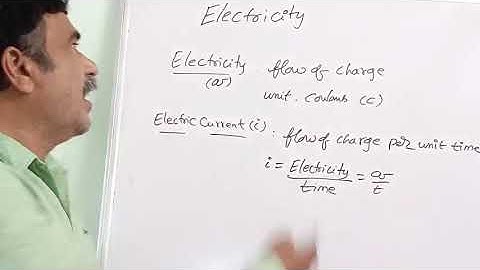 Electricity
Electricity flow of charge
(q) unit. Coulomb (C)
Electric Current (i) : flow of charge per unit time
i = Electricity / time = q / t